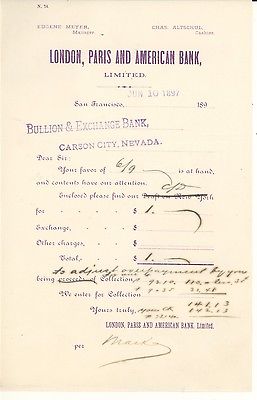 N. 74.
EUGENE MEYER, CHAS. ALTSCHUL,
Manager Cashier
LONDON, PARIS AND AMERICAN BANK,
LIMITED.
JUN 10 1897
San Francisco, 189
BULLION & EXCHANGE BANK,
CARSON CITY, NEVADA.
Dear Sir:
Your favor of 6/9 is at hand,
and contents have our attention.
Enclosed please find our Draft on New York
for $ 1.
Exchange, $
Other charges, $
Total, $ 1.
to adjust overpayment by you
being proceeds of Collection
We enter for Collection
141.13
Yours truly, 142.13
LONDON, PARIS AND AMERICAN BANK, Limited.
per